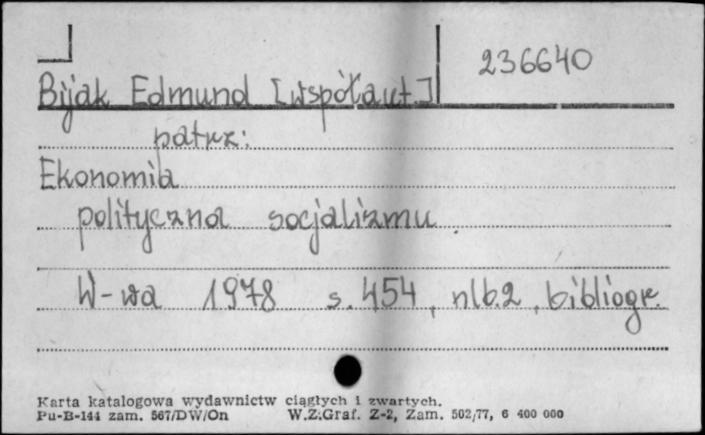 236640
Bijak Edmund [współaut.]
patrz:
Ekonomia
polityczna socjalizmu.
W-wa 1978 s. 454, nlb.2, bibliogr.
Karta katalogowa wydawnictw ciągłych i zwartych.
Pu-B-144 zam. 567/DW/On W.Z.Graf. Z-2, Zam. 502/77, 6 400 000